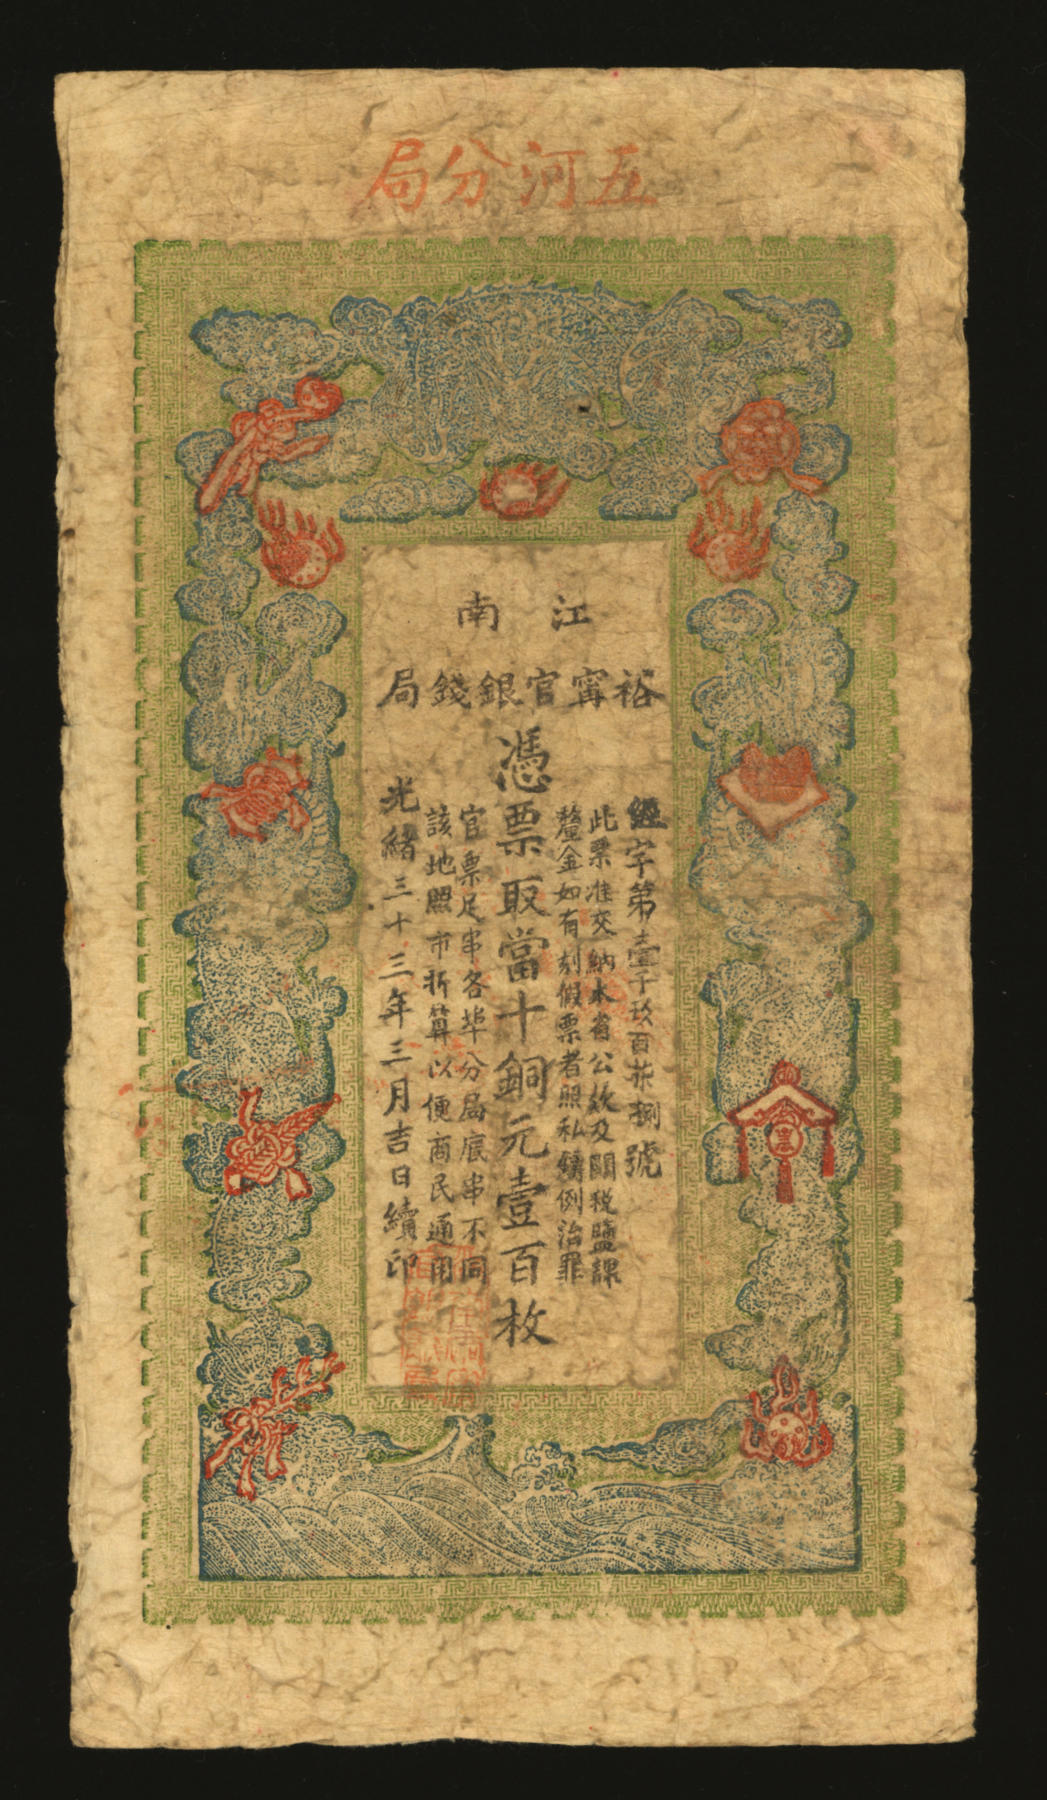 五河分局
江南
裕甯官銀錢局
經字第壹千玖百柒拾捌號
此票准交納本省公欵及關稅鹽課
釐金如有刻假票者照私鑄例治罪
憑票取當十銅元壹百枚
官票足串各埠分局底串不同
該地照市折算以便商民通用
光緒三十三年三月吉日續印